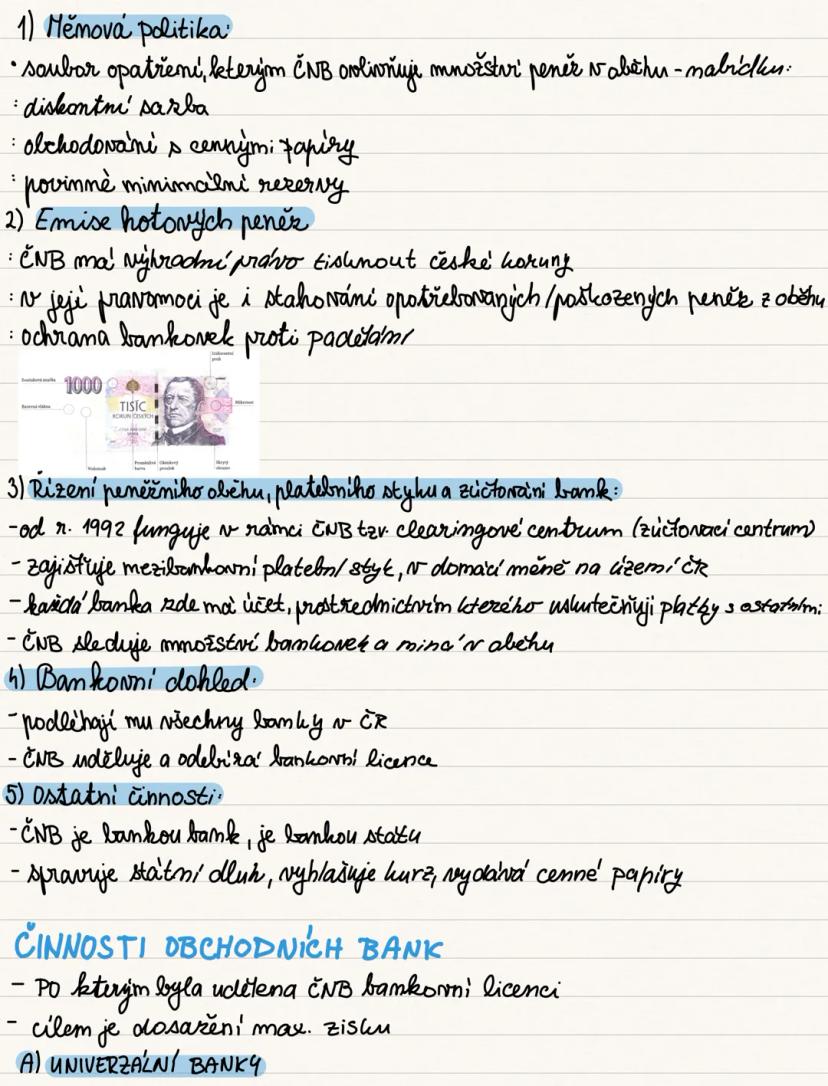 1) Měnová politika:
• soubor opatření, kterým ČNB ovlivňuje množství peněz v oběhu - nabídku:
: diskontní sazba
: obchodování s cennými papíry
: povinné minimální rezervy
2) Emise hotových peněz
: ČNB má výhradní právo tisknout české koruny
: v její pravomoci je i stahování opotřebovaných/poškozených peněz z oběhu
: ochrana bankovek proti padělání
1000
TISÍC
KORUN ČESKÝCH
Vodoznak
3) Řízení peněžního oběhu, platebního styku a zúčtování bank:
- od r. 1992 funguje v rámci ČNB tzv. clearingové centrum (zúčtovací centrum)
- zajišťuje mezibankovní platební styk, v domácí měně na území ČR
- každá banka zde má účet, prostřednictvím kterého uskutečňují platby s ostatními
- ČNB sleduje množství bankovek a mincí v oběhu
4) Bankovní dohled:
- podléhají mu všechny banky v ČR
- ČNB uděluje a odebírá bankovní licence
5) Ostatní činnosti:
- ČNB je bankou bank, je bankou státu
- spravuje státní dluh, vyhlašuje kurz, vydává cenné papíry
ČINNOSTI OBCHODNÍCH BANK
- PO kterým byla udělena ČNB bankovní licenci
- cílem je dosažení max. zisku
A) UNIVERZÁLNÍ BANKY